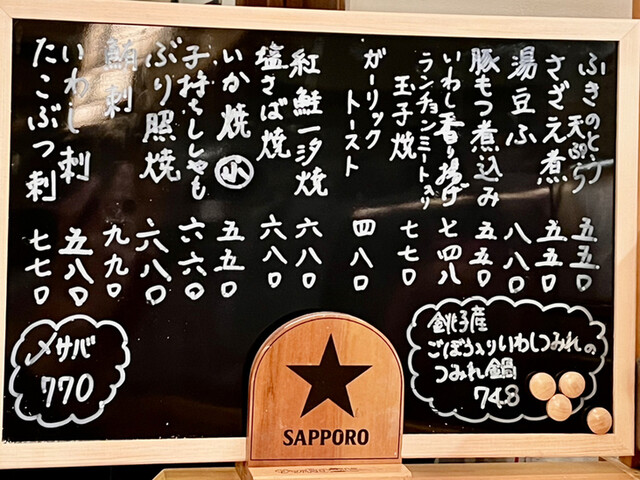 ふきのとう
天ぷら
五五〇
さざえ煮
五五〇
湯豆ふ
八八〇
豚もつ煮込み
五五〇
いわし香り揚げ
七四八
ランチョンミート入り
玉子焼
七七〇
ガーリック
トースト
四八〇
紅鮭一汐焼
六八〇
塩さば焼
六八〇
いか焼 小
五五〇
子持ちししゃも
六六〇
ぶり照焼
六八〇
鮪刺
九九〇
いわし刺
五八〇
たこぶつ刺
七七〇
銚子産
ごぼう入りいわしつみれの
つみれ鍋
748
〆サバ
770
SAPPORO